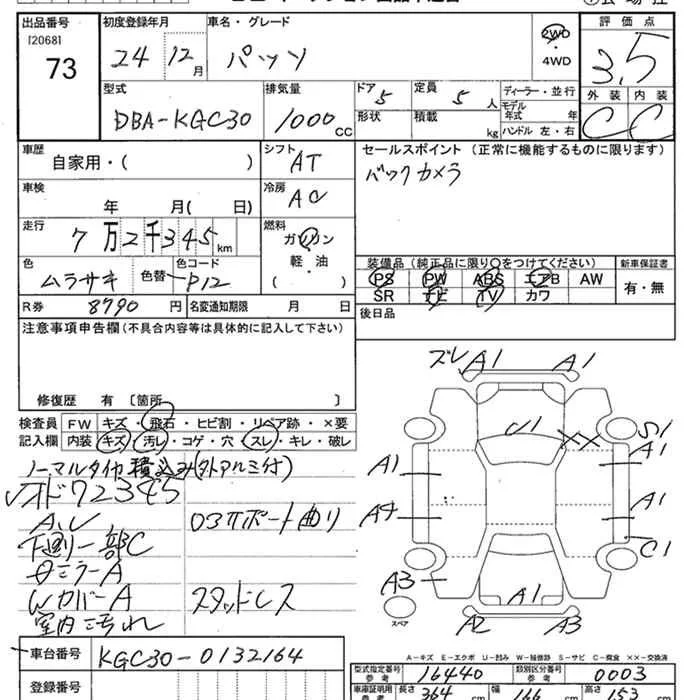 出品番号 初度登録年月 車名・グレード 評価点
[2068]
73
24 12月 パッソ 2WD ・ 4WD 3.5
外装 内装
C C
型式 排気量 ドア 定員 ディーラー・並行
DBA-KGC30 1000cc 5 5人 モデル年式 年
形状 積載 kg ハンドル 左・右
車歴 シフト セールスポイント (正常に機能するものに限ります)
自家用・( ) AT
バックカメラ
車検 冷房
年 月( 日) AC
走行 燃料
7万2千345km ガソリン
軽・油
( )
色 色替 色コード
ムラサキ P12
装備品(純正品に限り○をつけてください) 新車保証書
PS PW ABS エアB AW 有・無
SR ナビ TV カワ
R券 8790円 名変通知期限 月 日 後日品
注意事項申告欄(不具合内容等は具体的に記入して下さい)
修復歴 有 〔箇所 〕
検査員 FW キズ・飛石・ヒビ割・リペア跡・×要
記入欄 内装 キズ・汚レ・コゲ・穴・スレ・キレ・破レ
ノーマルタイヤ積込み(外アルミ付)
オド72345
下廻り一部C
ミラーA
WカバーA スタッドレス
室内汚れ
車台番号 KGC30-0132164
登録番号
ズレ A1 A1
U1 XX S1
A1 A1
A4 A1
C1
A3 A1
スペア A2 A3
A-キズ E-エクボ U-凹み W-補修跡 S-サビ C-腐食 ××-交換済
型式指定番号 参考 16440 類別区分番号 参考 0003
車庫証明用 参考 長さ 364 cm 幅 166 cm 高さ 153 cm